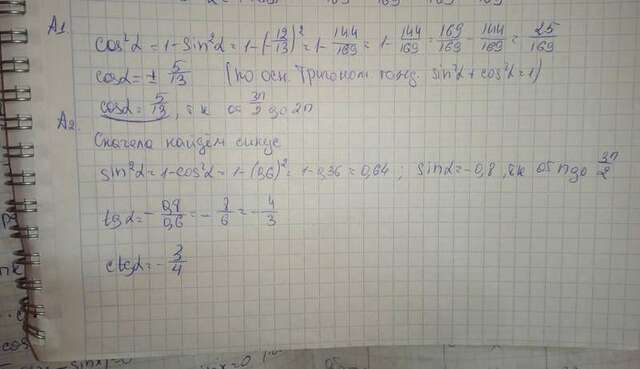 A1.
cos²α = 1 - sin²α = 1 - (-12/13)² = 1 - 144/169 = 1 - 144/169 = 169/169 - 144/169 = 25/169
cosα = ± 5/13 (по осн. тригоном. тожд. sin²α + cos²α = 1)
cosα = 5/13, т.к от 3π/2 до 2π
A2.
Сначала найдём синус
sin²α = 1 - cos²α = 1 - (0,6)² = 1 - 0,36 = 0,64 ; sinα = -0,8, т.к от π до 3π/2
tgα = - 0,8/0,6 = - 8/6 = - 4/3
ctgα = - 3/4